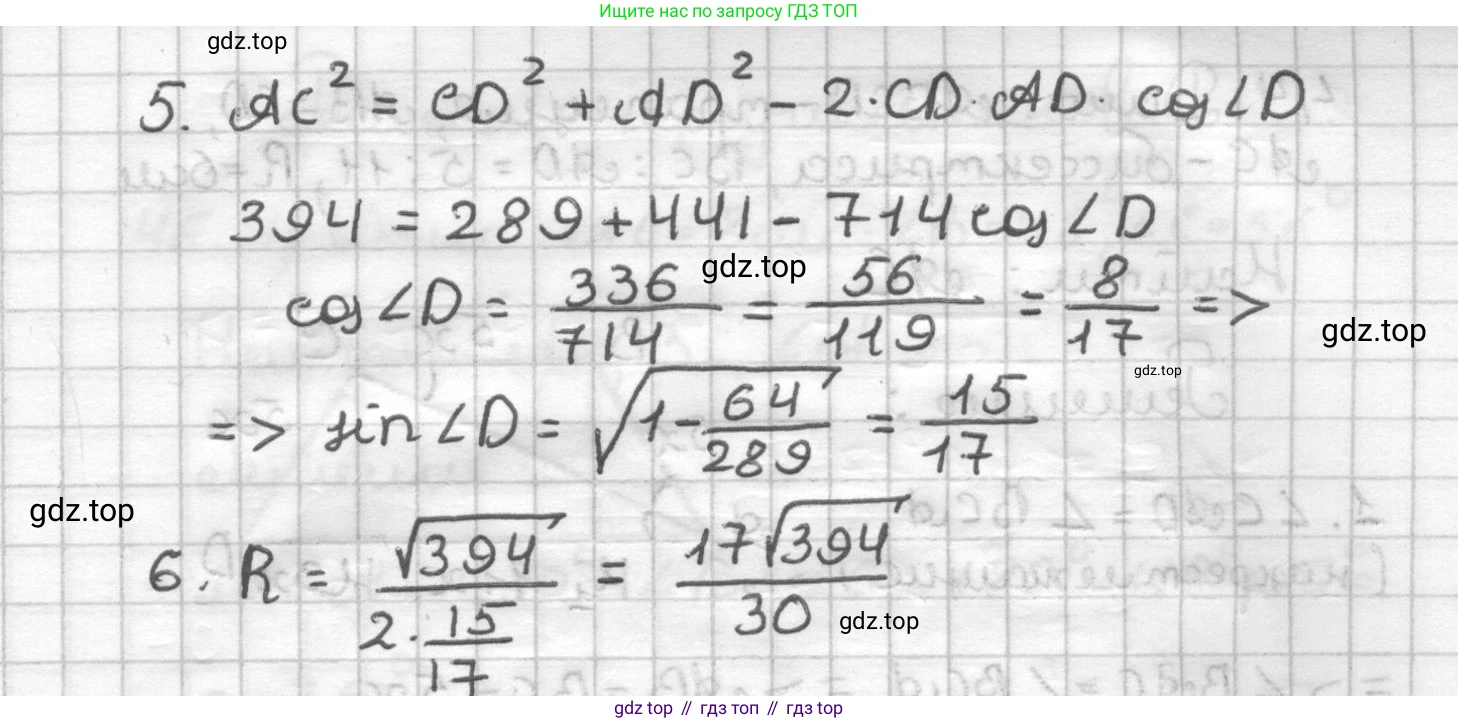 Ищите нас по запросу ГДЗ ТОП
gdz.top
5. AC² = CD² + AD² - 2·CD·AD·cos∠D
394 = 289 + 441 - 714 cos∠D
gdz.top
cos∠D = 336/714 = 56/119 = 8/17 =>
gdz.top
gdz.top
=> sin∠D = √(1 - 64/289) = 15/17
gdz.top
6. R = √394/(2·15/17) = 17√394/30
gdz.top
gdz top // гдз топ // гдз top